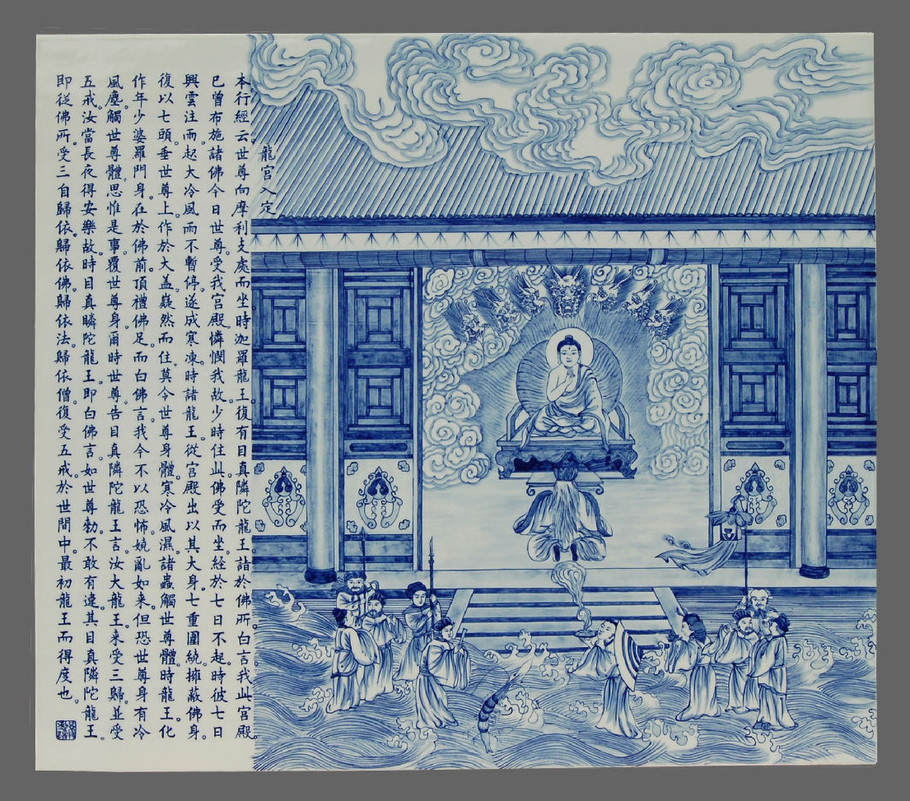 龍宮入定
本行經云世尊向摩利支處而坐時迦羅龍王復有目真隣陀龍王詣於佛所白言我此宮殿
已曾布施諸佛今日世尊受我宮殿憐憫我故少時住此佛受而坐經於七日不起時彼七日
興雲注雨起大冷風而不暫停遂成寒凍時諸龍王從宮殿出以其大身七重圍繞擁蔽佛身
復以七頭垂世尊上作於大盖嶷然而住莫令世尊身體寒冷風濕諸蟲觸世尊體時龍王化
作年少婆羅門身在於佛前頂禮佛足而白佛言我今不以恐怖嬈亂如來但恐世尊身有冷
風塵觸世尊體思惟是事覆世尊身爾時世尊告目真隣陀龍王言汝大龍王來受三歸並受
五戒汝當長夜得安樂故時目真瞵陀龍王即白佛言如世尊勑不敢有違其目真隣陀龍王
即從佛所受三自歸依歸依佛歸依法歸依僧復受五戒於世間中最初龍王而得度也